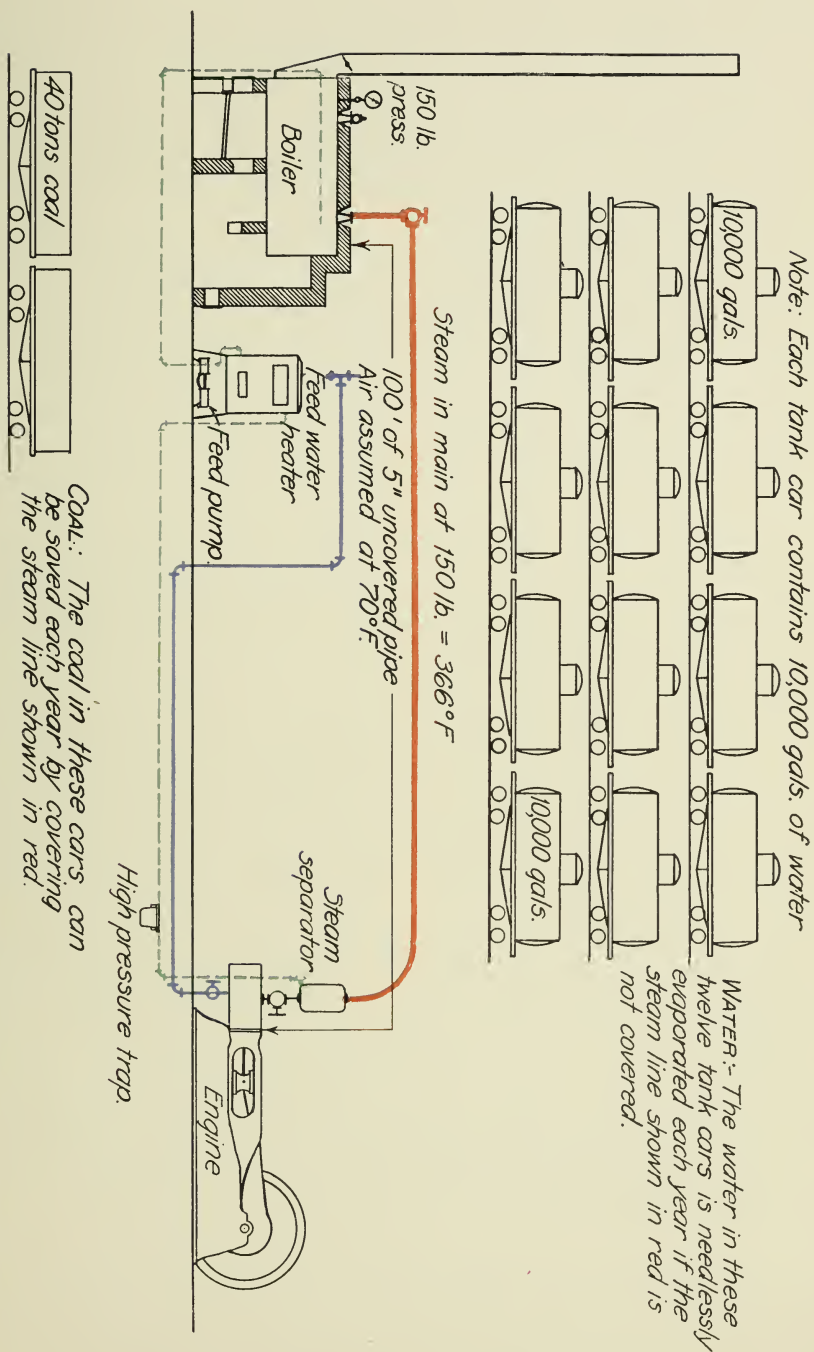 Note: Each tank car contains 10,000 gals. of water
10,000 gals.
10,000 gals.
WATER:- The water in these
twelve tank cars is needlessly
evaporated each year if the
steam line shown in red is
not covered.
Steam in main at 150 lb. = 366°F
100' of 5" uncovered pipe
Air assumed at 70°F.
150 lb.
press.
Boiler
Feed water
heater
Feed pump.
Steam
separator
Engine
High pressure trap.
40 tons coal
COAL: The coal in these cars can
be saved each year by covering
the steam line shown in red.